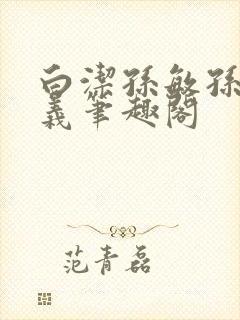 白潔孫敏孫
義筆趣閣
范青磊